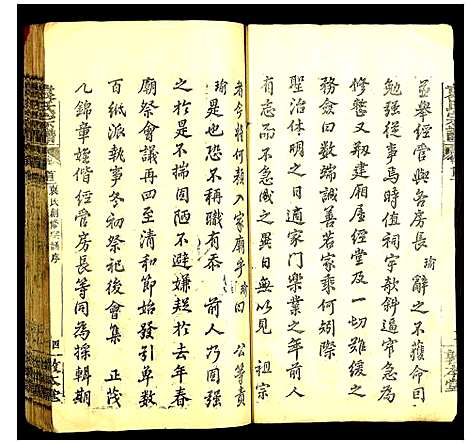 公舉經管與各房長瑜辭之不獲命因
勉強從事焉時值祠宇欹斜逼窄急為
修整又刱建廂屋經堂及一切難緩之
務僉曰數端誠善若家乘何矧際
聖治休明之日適家門樂業之年前人
有志而不急成之異日無以見 祖宗
者今將何賴入家廟乎瑜曰 公等責
瑜是也然不稱職有忝 前人乃強
之於再不揣固陋不避嫌疑於去年春
廟祭會議再四至清和節始發引單數
百紙派執事冬初祭祀後會集 正茂
几錦章姪偕經管房長等同為採輯期
袁氏宗譜
卷首
袁氏創修宗譜序
四
敦本堂